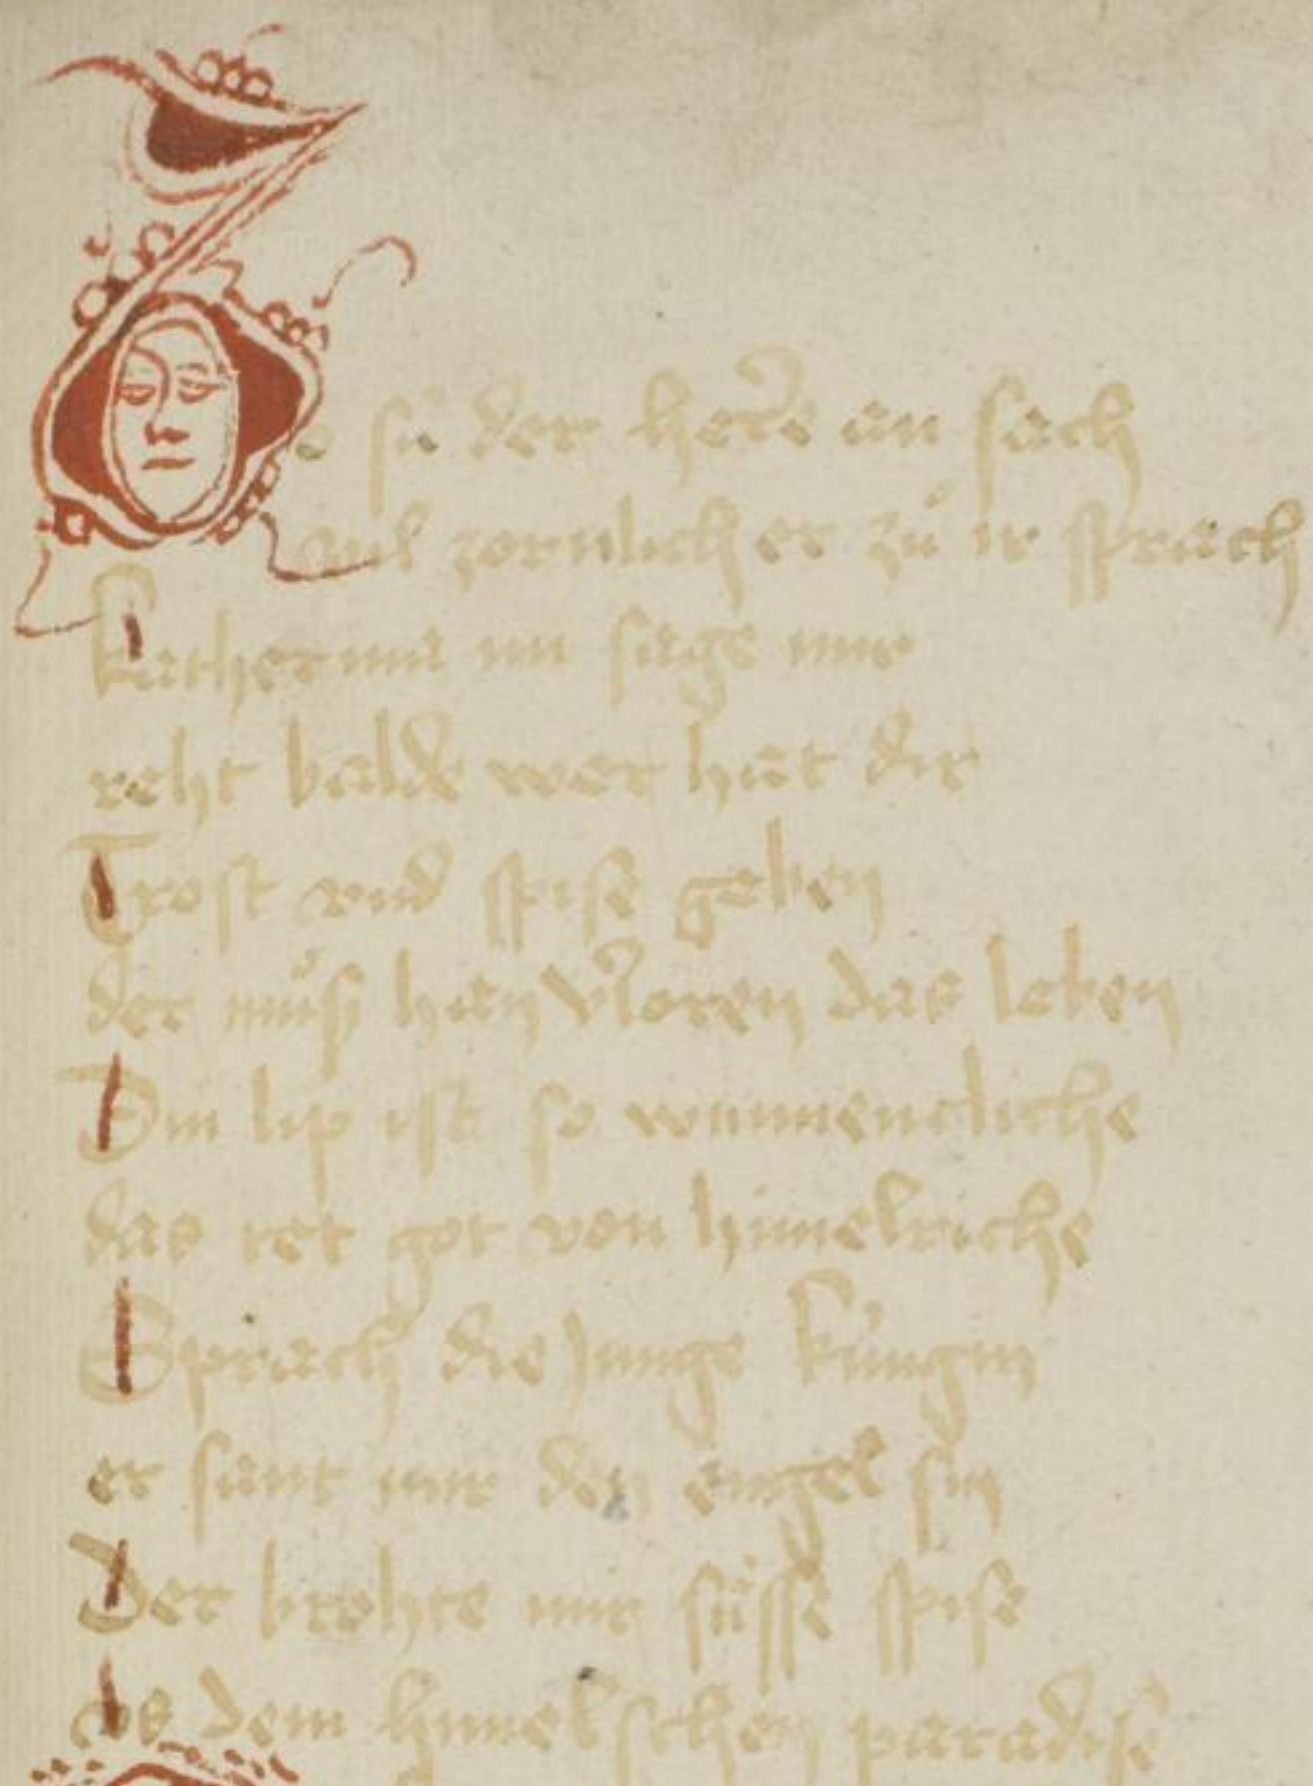 Do sü der herre an sach
vil zornlich er zü ir sprach
Katherina nu sage mir
reht balde wer hat dir
Trost vnd spise geben
der müs han v'loren das leben
Din lip ist so wunnencliche
das tet got von himelriche
Sprach die Junge künigin
er sant mir den engel sin
Der brohte mir süsse spise
vs dem himelschen paradise